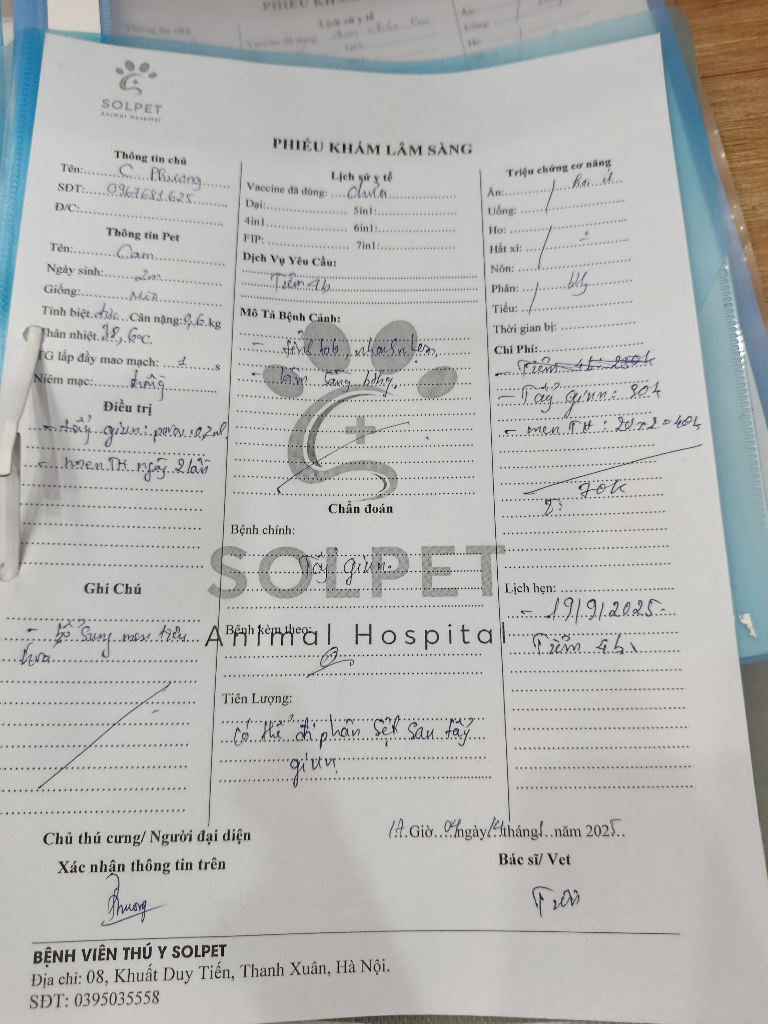 SOLPET
Animal Hospital
PHIẾU KHÁM LÂM SÀNG
Thông tin chủ
Tên: C. Phương
SĐT: 0967681.625
Đ/C:
Thông tin Pet
Tên: Cam
Ngày sinh: 2m
Giống: Mèo
Tính biệt: đực Cân nặng: 0,6 kg
Thân nhiệt 38,6 °C.
TG lấp đầy mao mạch: 1 s
Niêm mạc: hồng
Điều trị
- tẩy giun: 0,2ml
- men TH ngày 2 lần
Ghi Chú
- bổ sung men tiêu
hóa
Lịch sử y tế
Vaccine đã dùng: chưa
Dại: 5in1:
4in1 6in1:
FIP: 7in1:
Dịch Vụ Yêu Cầu:
Tiêm 4b
Mô Tả Bệnh Cảnh:
-
- lâm sàng bthg.
Chẩn đoán
Bệnh chính:
Tẩy giun.
SOLPET
Animal Hospital
Bệnh kèm theo:
Tiên Lượng:
Có thể đi phân sệt sau tẩy
giun
Triệu chứng cơ năng
Ăn:
Uống:
Ho:
Hắt xì:
Nôn:
Phân: bthg
Tiểu:
Thời gian bị:
Chi Phí:
- Tiêm 4b: 230k
- Tẩy giun: 30k
- men TH: 20x2=40k
70k
Lịch hẹn:
- 19/9/2025
Tiêm 4b.
Chủ thú cưng/ Người đại diện
Xác nhận thông tin trên
Phương
17 Giờ ngày tháng năm 2025
Bác sĩ/ Vet
BỆNH VIÊN THÚ Y SOLPET
Địa chỉ: 08, Khuất Duy Tiến, Thanh Xuân, Hà Nội.
SĐT: 0395035558